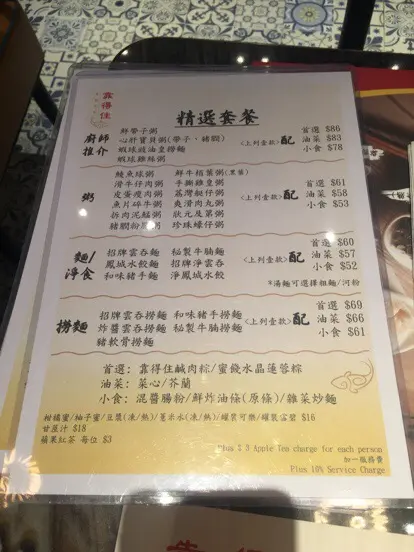 靠得住
精選套餐
廚師推介
鮮帶子粥
心肝寶貝粥(帶子,豬膶)
蝦球豉油皇撈麵
蝦球雞絲粥
<上列壹款>配
首選 $86
油菜 $83
小食 $78
粥
鯪魚球粥 鮮牛𦟌葉粥
滑牛仔肉粥 手撕雞皇粥
皮蛋瘦肉粥 荔灣艇仔粥
魚片碎牛粥 爽滑肉丸粥
拆肉泥鯭粥 狀元及第粥
豬膶粉腸粥 珍珠蠔仔粥
<上列壹款>配
首選 $61
油菜 $58
小食 $53
麵/淨食
招牌雲吞麵 秘製牛腩麵
鳳城水餃麵 招牌淨雲吞
和味豬手麵 淨鳳城水餃
<上列壹款>配
首選 $60
油菜 $57
小食 $52
*湯麵可選擇粗麵/河粉
撈麵
招牌雲吞撈麵 和味豬手撈麵
炸醬雲吞撈麵 秘製牛腩撈麵
豬軟骨撈麵
<上列壹款>配
首選 $69
油菜 $66
小食 $61
首選:靠得住鹹肉粽/蜜餞水晶蓮蓉粽
油菜:菜心/芥蘭
小食:混醬腸粉/鮮炸油條(原條)/雜菜炒麵
柑橘蜜/柚子蜜/豆漿(凍/熱)/薏米水(凍/熱)/罐裝可樂/罐裝雪碧 $16
甘蔗汁 $18
蘋果紅茶 每位 $3
Plus $ 3 Apple Tea charge for each person
加一服務費
Plus 10% Service Charge